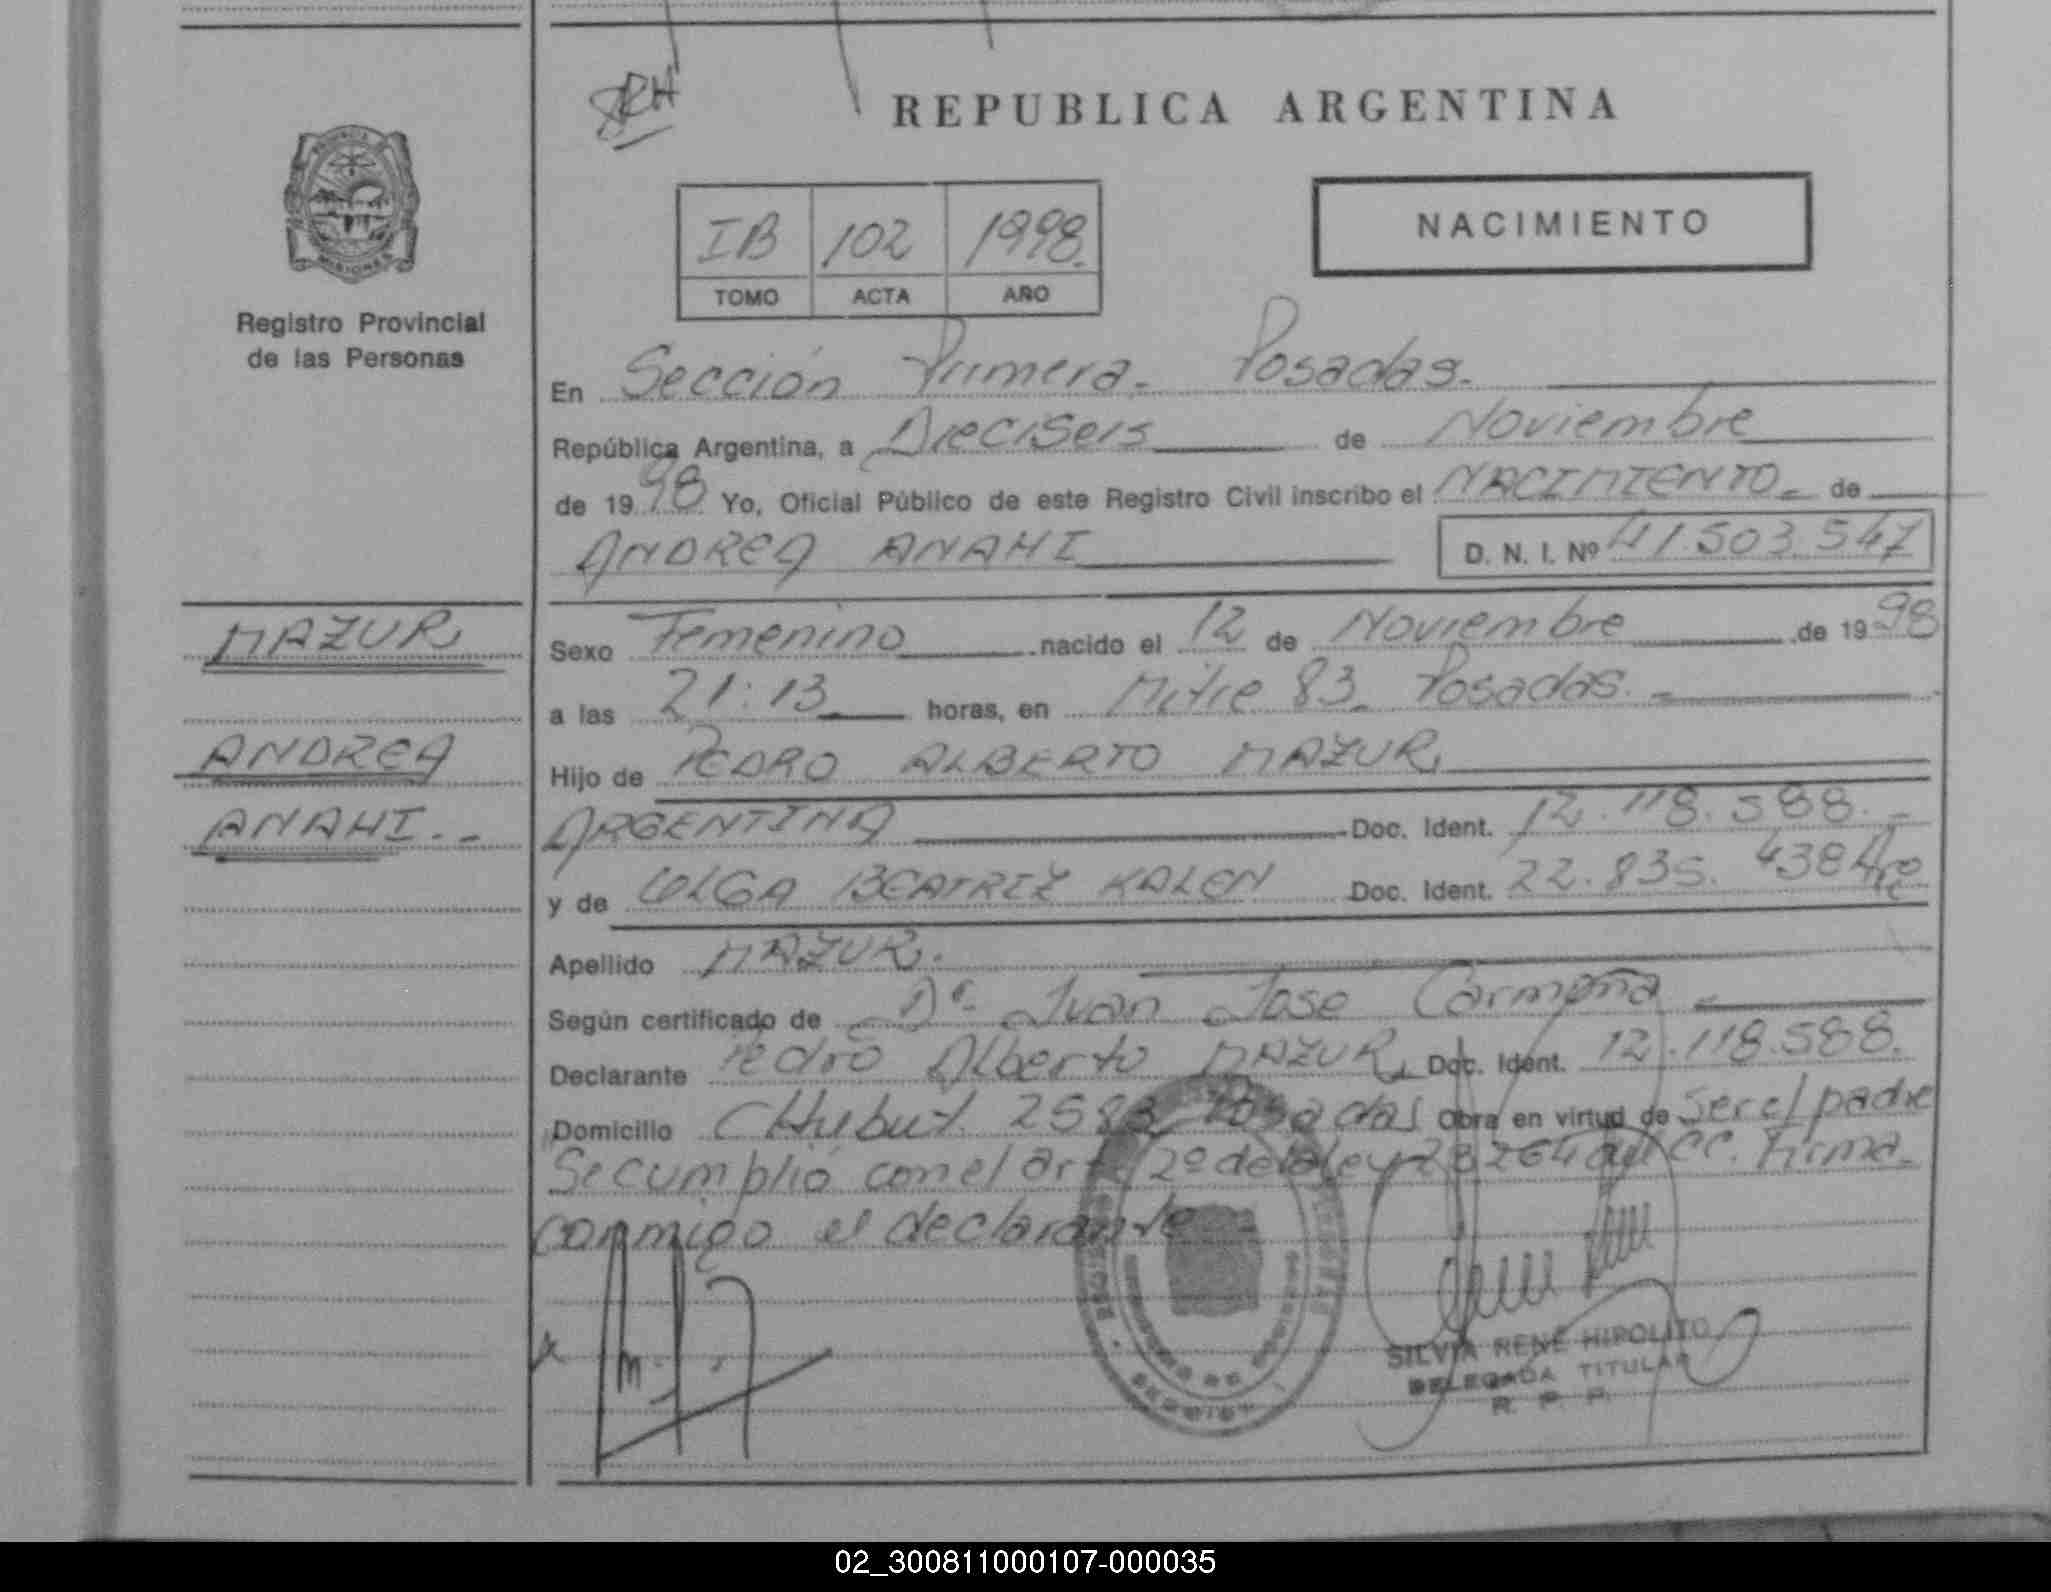 SRH
REPUBLICA ARGENTINA
IB 102 1998.
TOMO ACTA AÑO
NACIMIENTO
MISIONES
Registro Provincial
de las Personas
En Sección Primera. Posadas.
República Argentina, a Dieciseis de Noviembre
de 1998 Yo, Oficial Público de este Registro Civil inscribo el NACIMIENTO. de
ANDREA ANAHI D. N. I. Nº 41.503.547
MAZUR
ANDREA
ANAHI.-
Sexo Femenino nacido el 12 de Noviembre de 1998
a las 21:13 horas, en Mitre 83. Posadas.-
Hijo de PEDRO ALBERTO MAZUR
ARGENTINA Doc. Ident. 12.118.588.-
y de OLGA BEATRIZ KALEN Doc. Ident. 22.835.438 Arg
Apellido MAZUR.
Según certificado de Dr. Juan Jose Carmona
Declarante Pedro Alberto MAZUR Doc. Ident. 12.118.588.
Domicilio CHubut. 2583 Posadas Obra en virtud de Ser el padre
Se cumplió con el art. 2º de la ley 23264 del CC. Firma
conmigo el declarante
SILVIA RENÉ HIPOLITO
DELEGADA TITULAR
R. P. P.
02_300811000107-000035